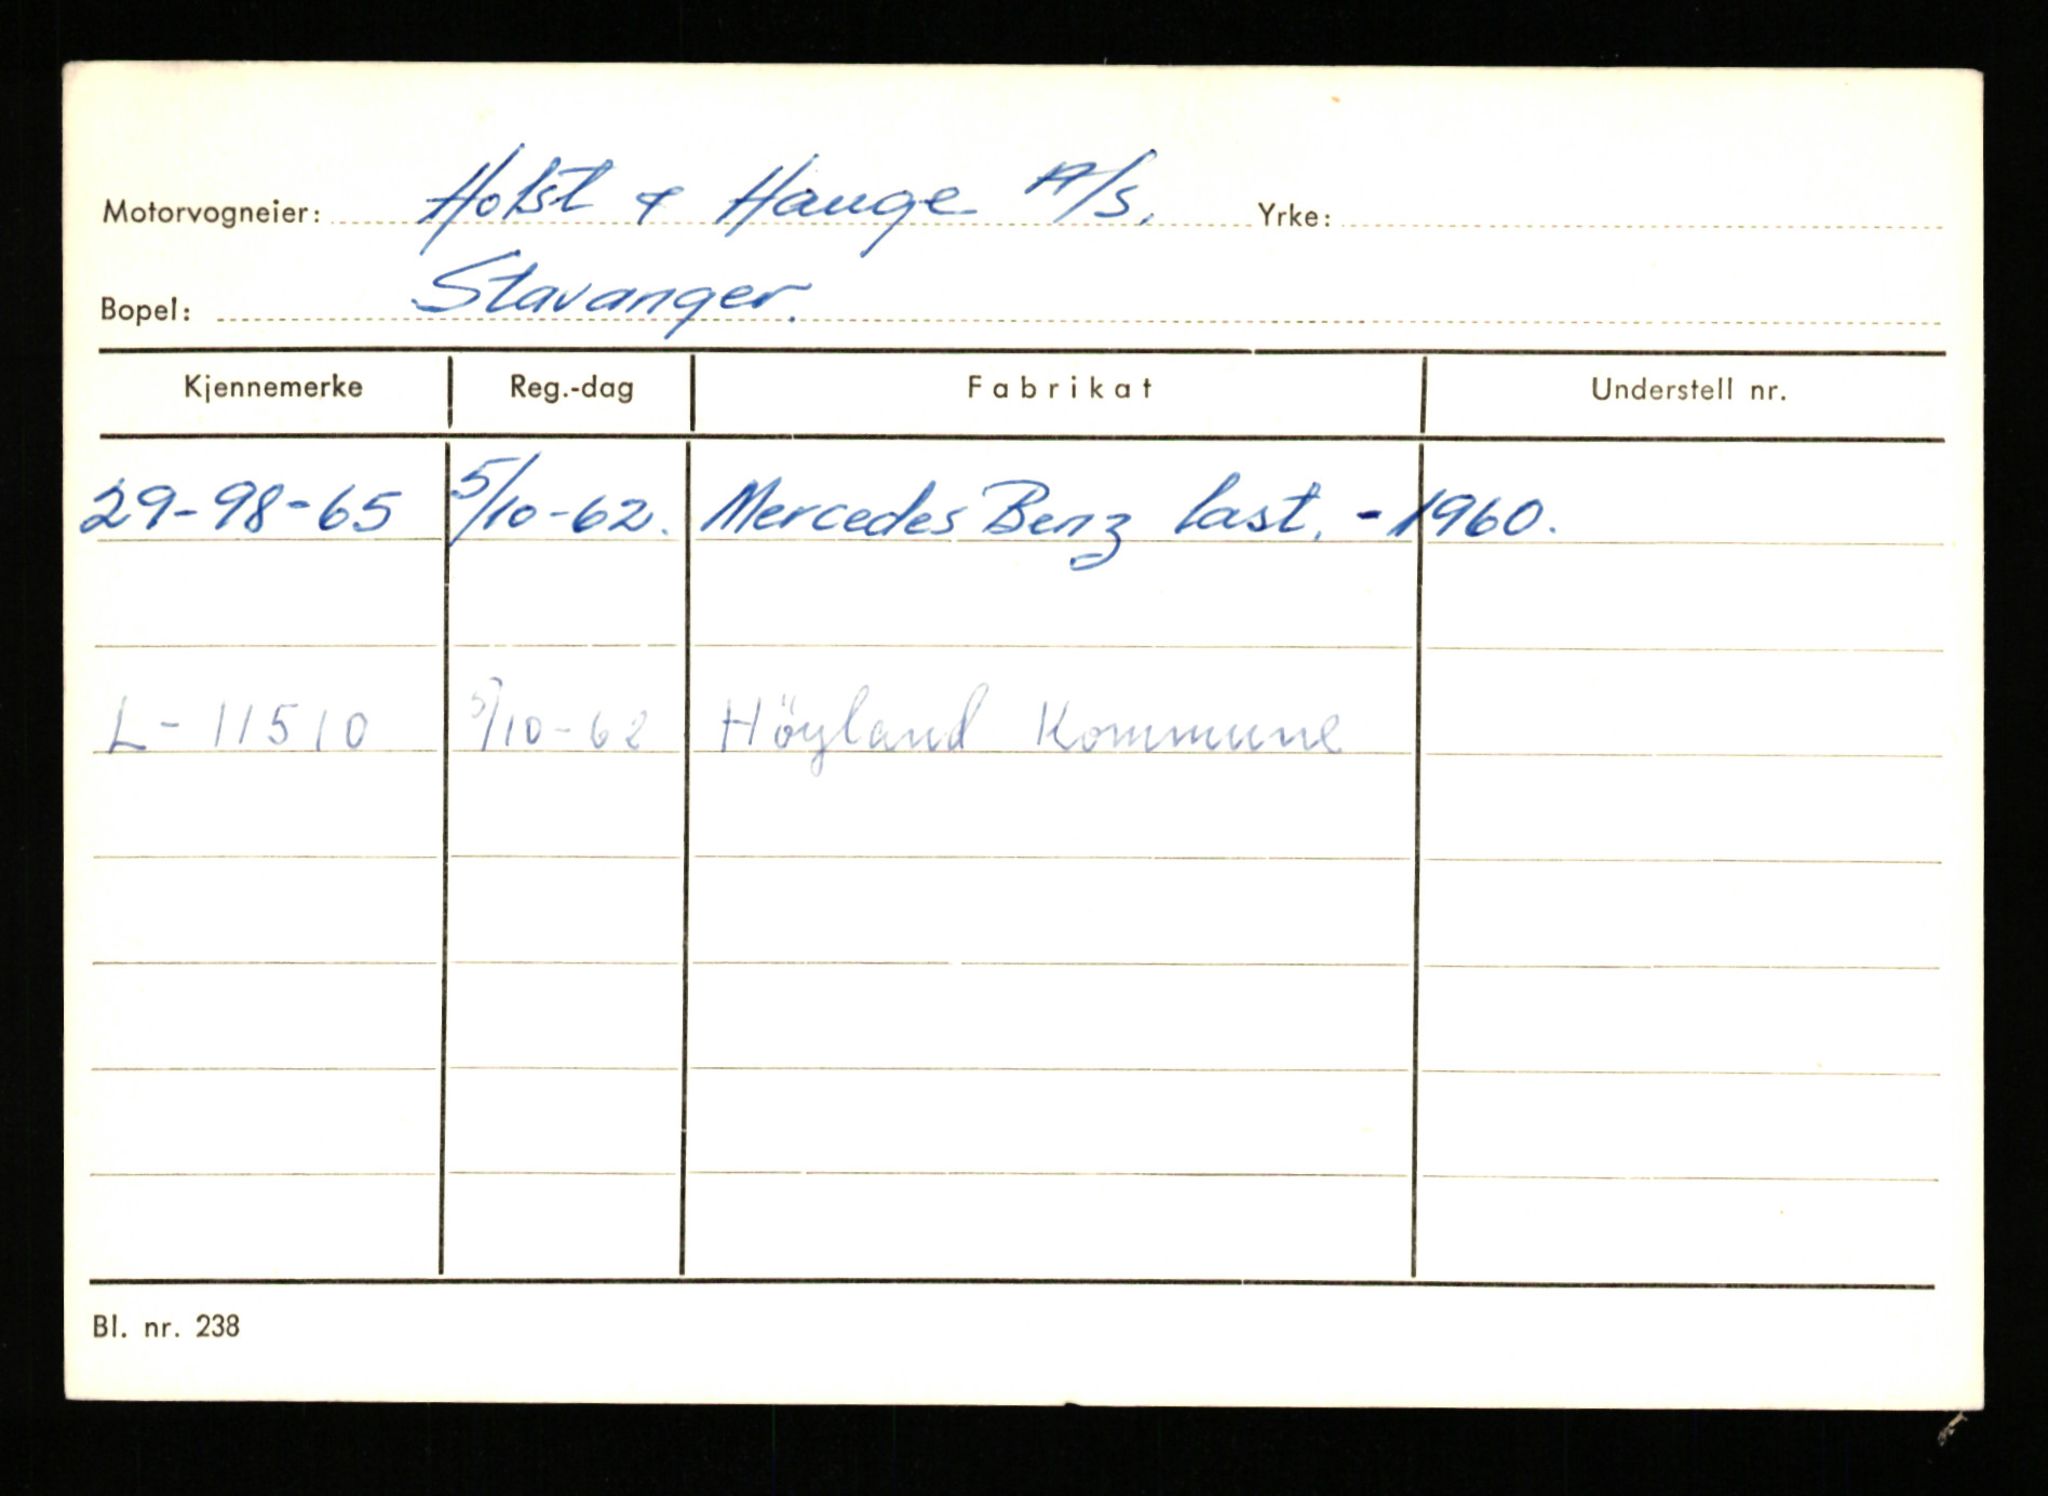 Motorvogneier: Holst & Hauge A/S. Yrke:
Bopel: Stavanger.
Kjennemerke Reg.-dag Fabrikat Understell nr.
29-98-65 5/10-62. Mercedes Benz last. - 1960.
L - 11510 5/10-62 Höyland Kommune
Bl. nr. 238